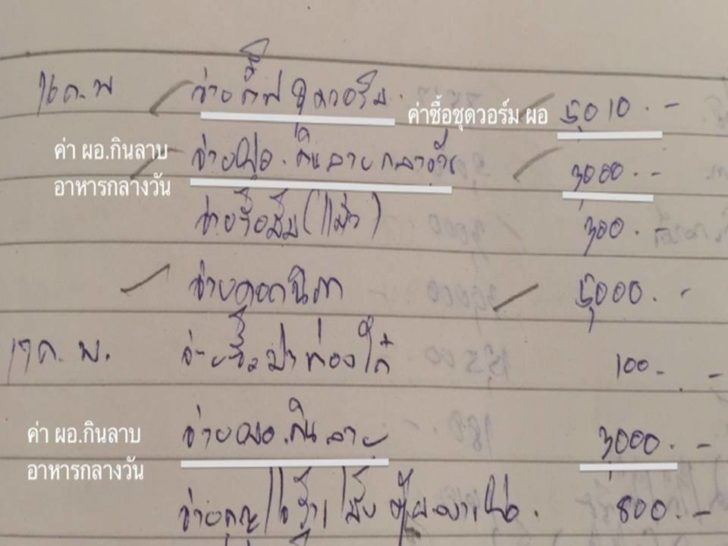 16 ก.พ จ่ายซื้อชุดวอร์ม. ค่าซื้อชุดวอร์ม ผอ 5,010.-
ค่า ผอ.กินลาบ
อาหารกลางวัน
จ่าย ผอ. กินลาบกลางวัน 3,000.-
จ่ายซื้อส้ม( ) 300.-
จ่าย 5,000.-
17 ก.พ. จ่ายซื้อปาท่องโก๋ 100.-
ค่า ผอ.กินลาบ
อาหารกลางวัน
จ่าย ผอ. กินลาบ 3,000.-
จ่าย 800.-